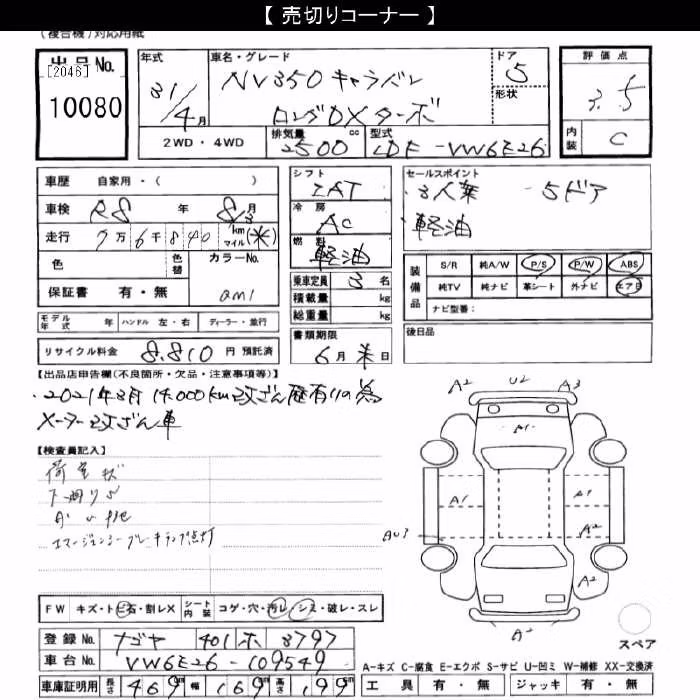 【 売切りコーナー 】
(複合機)対応用紙
出品No.
[2046]
10080
年式
31/4月
車名・グレード
NV350 キャラバン
ロングDX ターボ
ドア
5
形状
評価点
3.5
内装
C
2WD ・ 4WD
排気量
2500 cc
型式
LDF-VW6E26
車歴 自家用・( )
車検 R8 年 8月
走行 9万6千840 km マイル (米)
色
色替
カラーNo.
am1
保証書 有・無
モデル年式 年 ハンドル 左・右 ディーラー・並行
リサイクル料金 8,810 円 預託済
シフト
IAT
冷房
AC
燃料
軽油
乗車定員 3 名
積載量 kg
総重量 kg
書類期限
6月末日
セールスポイント
・3人乗 ・5ドア
・軽油
装備品
S/R 純A/W P/S P/W ABS
純TV 純ナビ 革シート 外ナビ エアB
ナビ型番:
後日品
【出品店申告欄(不良箇所・欠品・注意事項等)】
・2021年3月 14,000km改ざん歴有りの為
メーター改ざん車
【検査員記入】
荷室状
下廻りS
エマージェンシーブレーキランプ点灯
A2 U2 A3
A1
A1 A1
AU3 A2
A2
A2
スペア
FW キズ・トビ石・割レX シート内装 コゲ・穴・汚レ・シミ・破レ・スレ
登録No. ナゴヤ 401 ホ 3797
車台No. VW6E26-109549
車庫証明用 長さ 469cm 幅 169cm 高さ 199cm
A-キズ C-腐食 E-エクボ S-サビ U-凹ミ W-補修 XX-交換済
工具 有・無 ジャッキ 有・無